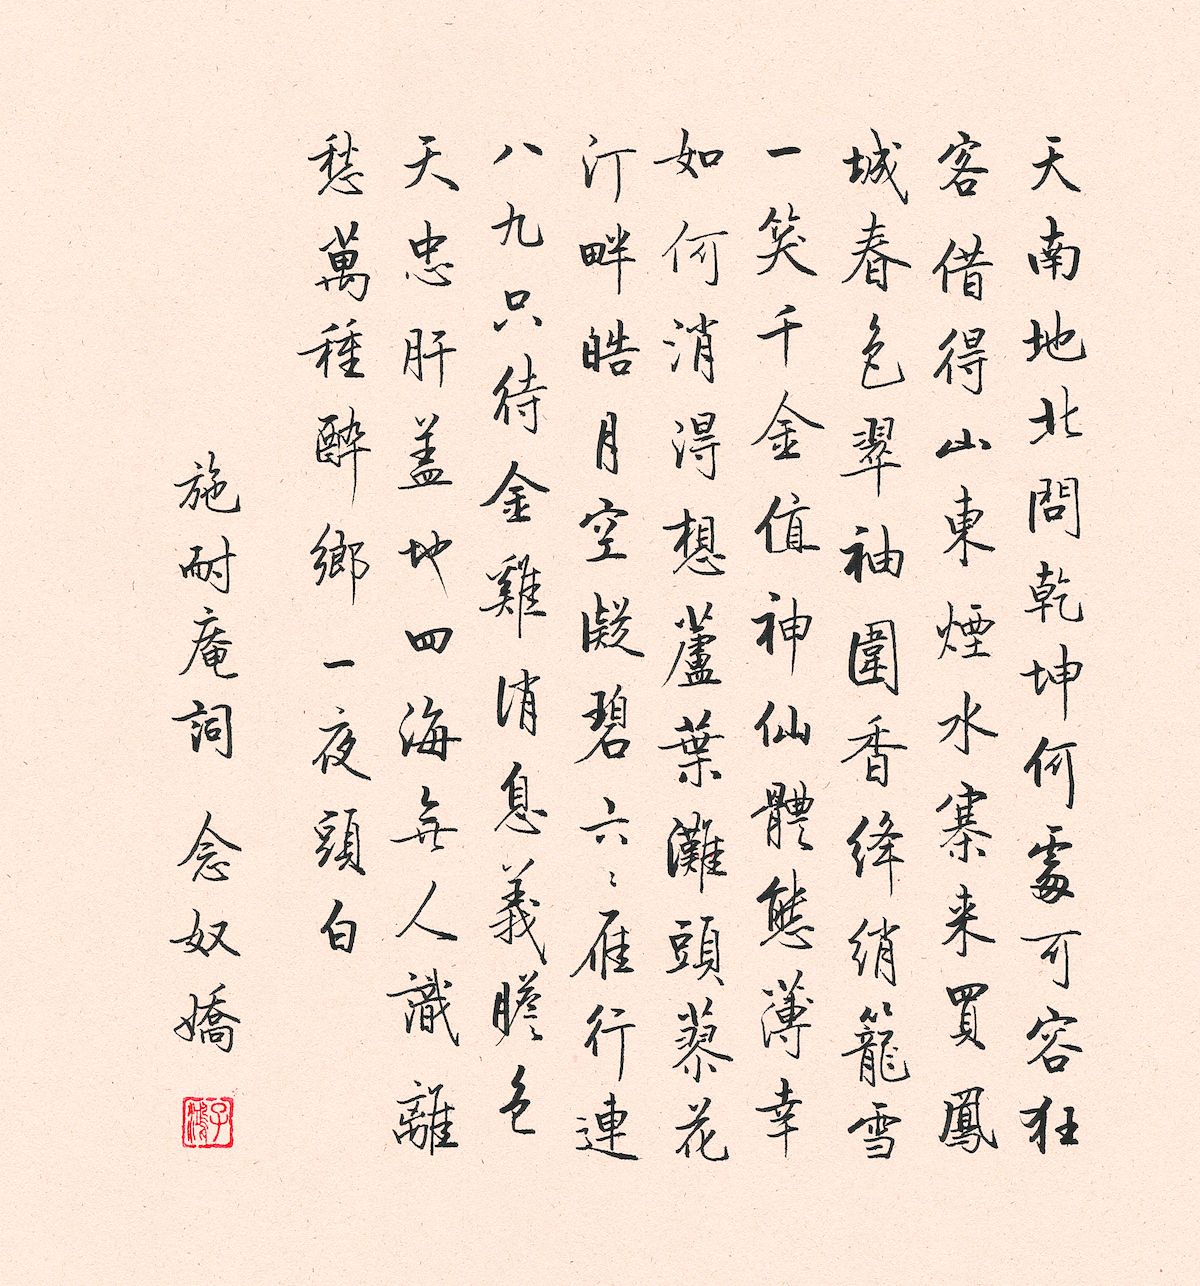 天南地北問乾坤何處可容狂
客借得山東煙水寨来買鳳
城春色翠袖圍香絳綃籠雪
一笑千金值神仙體態薄幸
如何消得想蘆葉灘頭蓼花
汀畔皓月空凝碧六〻雁行連
八九只待金雞消息義膽包
天忠肝盖地四海無人識離
愁萬種醉鄉一夜頭白
施耐庵詞 念奴嬌